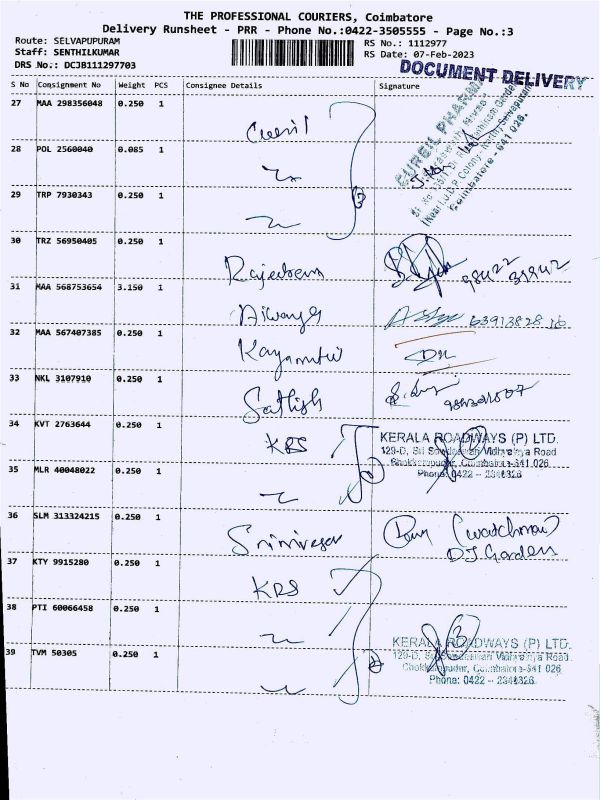 THE PROFESSIONAL COURIERS, Coimbatore
Delivery Runsheet - PRR - Phone No.:0422-3505555 - Page No.:3
Route: SELVAPUPURAM
Staff: SENTHILKUMAR
DRS No.: DCJB111297703
RS No.: 1112977
RS Date: 07-Feb-2023
DOCUMENT DELIVERY
S No Consignment No Weight PCS Consignee Details Signature
27 MAA 298356048 0.250 1
28 POL 2560040 0.085 1
29 TRP 7930343 0.250 1
30 TRZ 56950405 0.250 1
31 MAA 568753654 3.150 1
32 MAA 567407385 0.250 1
33 NKL 3107910 0.250 1 Sathish
34 KVT 2763644 0.250 1 KRS
KERALA ROADWAYS (P) LTD.
129-D, Sri Vidhyalaya Road
Coimbatore-641 026
Phone: 0422 - 2341326
35 MLR 40048022 0.250 1
36 SLM 313324215 0.250 1 Srinivasan (watchman)
D.J. Garden
37 KTY 9915280 0.250 1 KRS
38 PTI 60066458 0.250 1
KERALA ROADWAYS (P) LTD.
Coimbatore-641 026
Phone: 0422 - 2341326
39 TVM 50305 0.250 1